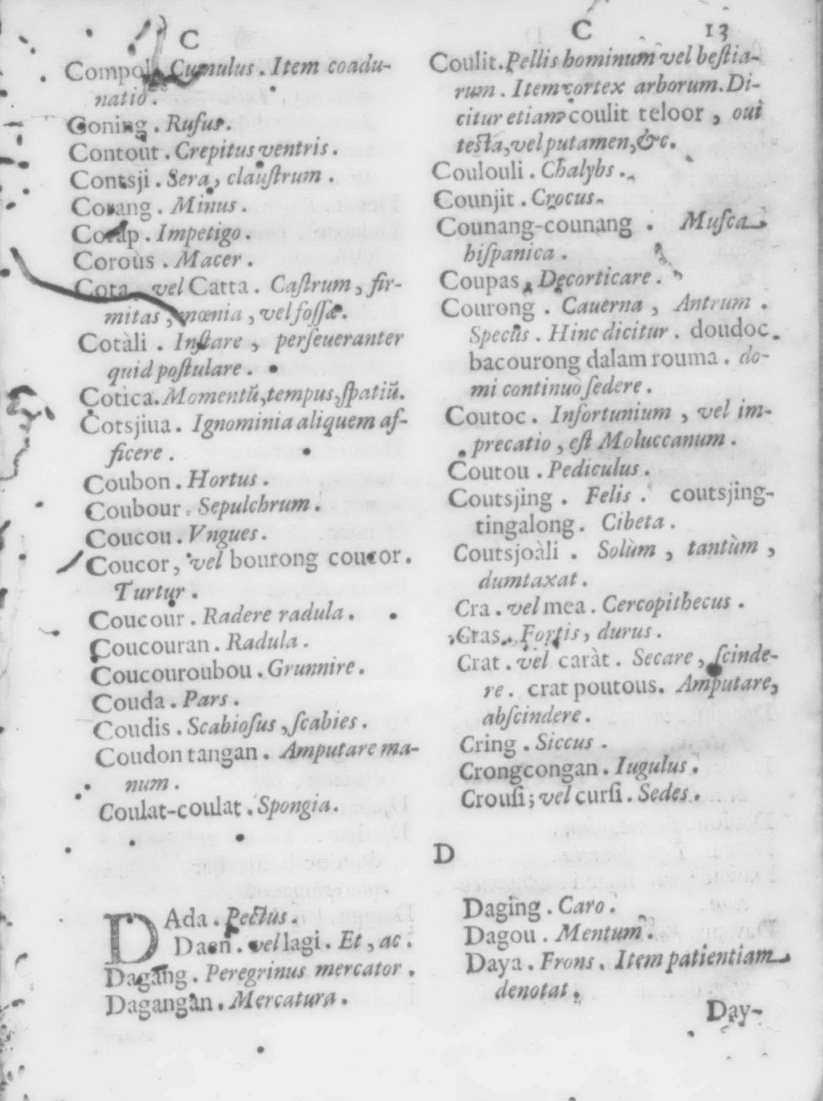 C
Compol. Cumulus. Item coadu-
natio.
Coning. Rufus.
Contout. Crepitus ventris.
Contsji. Sera, clauſtrum.
Corang. Minus.
Corap. Impetigo.
Coroùs. Macer.
Cota vel Catta. Caſtrum, fir-
mitas, mœnia, vel foſſæ.
Cotàli. Inſtare, perſeueranter
quid poſtulare.
Cotica. Momentũ, tempus, ſpatiũ.
Cotsjiua. Ignominia aliquem af-
ficere.
Coubon. Hortus.
Coubour. Sepulchrum.
Coucou. Vngues.
Coucor, vel bourong coucor.
Turtur.
Coucour. Radere radula.
Coucouran. Radula.
Coucouroubou. Grunnire.
Couda. Pars.
Coudis. Scabioſus, ſcabies.
Coudon tangan. Amputare ma-
num.
Coulat-coulat. Spongia.
DAda. Pectus.
Daen. vel lagi. Et, ac.
Dagang. Peregrinus mercator.
Dagangan. Mercatura.
C 13
Coulit. Pellis hominum vel beſtia-
rum. Item cortex arborum. Di-
citur etiam coulit teloor, oui
teſta, vel putamen, &c.
Coulouli. Chalybs.
Counjit. Crocus.
Counang-counang. Muſca
hiſpanica.
Coupas. Decorticare.
Courong. Cauerna, Antrum.
Specus. Hinc dicitur. doudoc
bacourong dalam rouma. do-
mi continuo ſedere.
Coutoc. Infortunium, vel im-
precatio, eſt Moluccanum.
Coutou. Pediculus.
Coutsjing. Felis. coutsjing-
tingalong. Cibeta.
Coutsjoàli. Solùm, tantùm,
dumtaxat.
Cra. vel mea. Cercopithecus.
Cras. Fortis, durus.
Crat. vel caràt. Secare, ſcinde-
re. crat poutous. Amputare,
abſcindere.
Cring. Siccus.
Crongcongan. Iugulus.
Crouſi; vel curſi. Sedes.
D
Daging. Caro.
Dagou. Mentum.
Daya. Frons. Item patientiam
denotat.
Day-